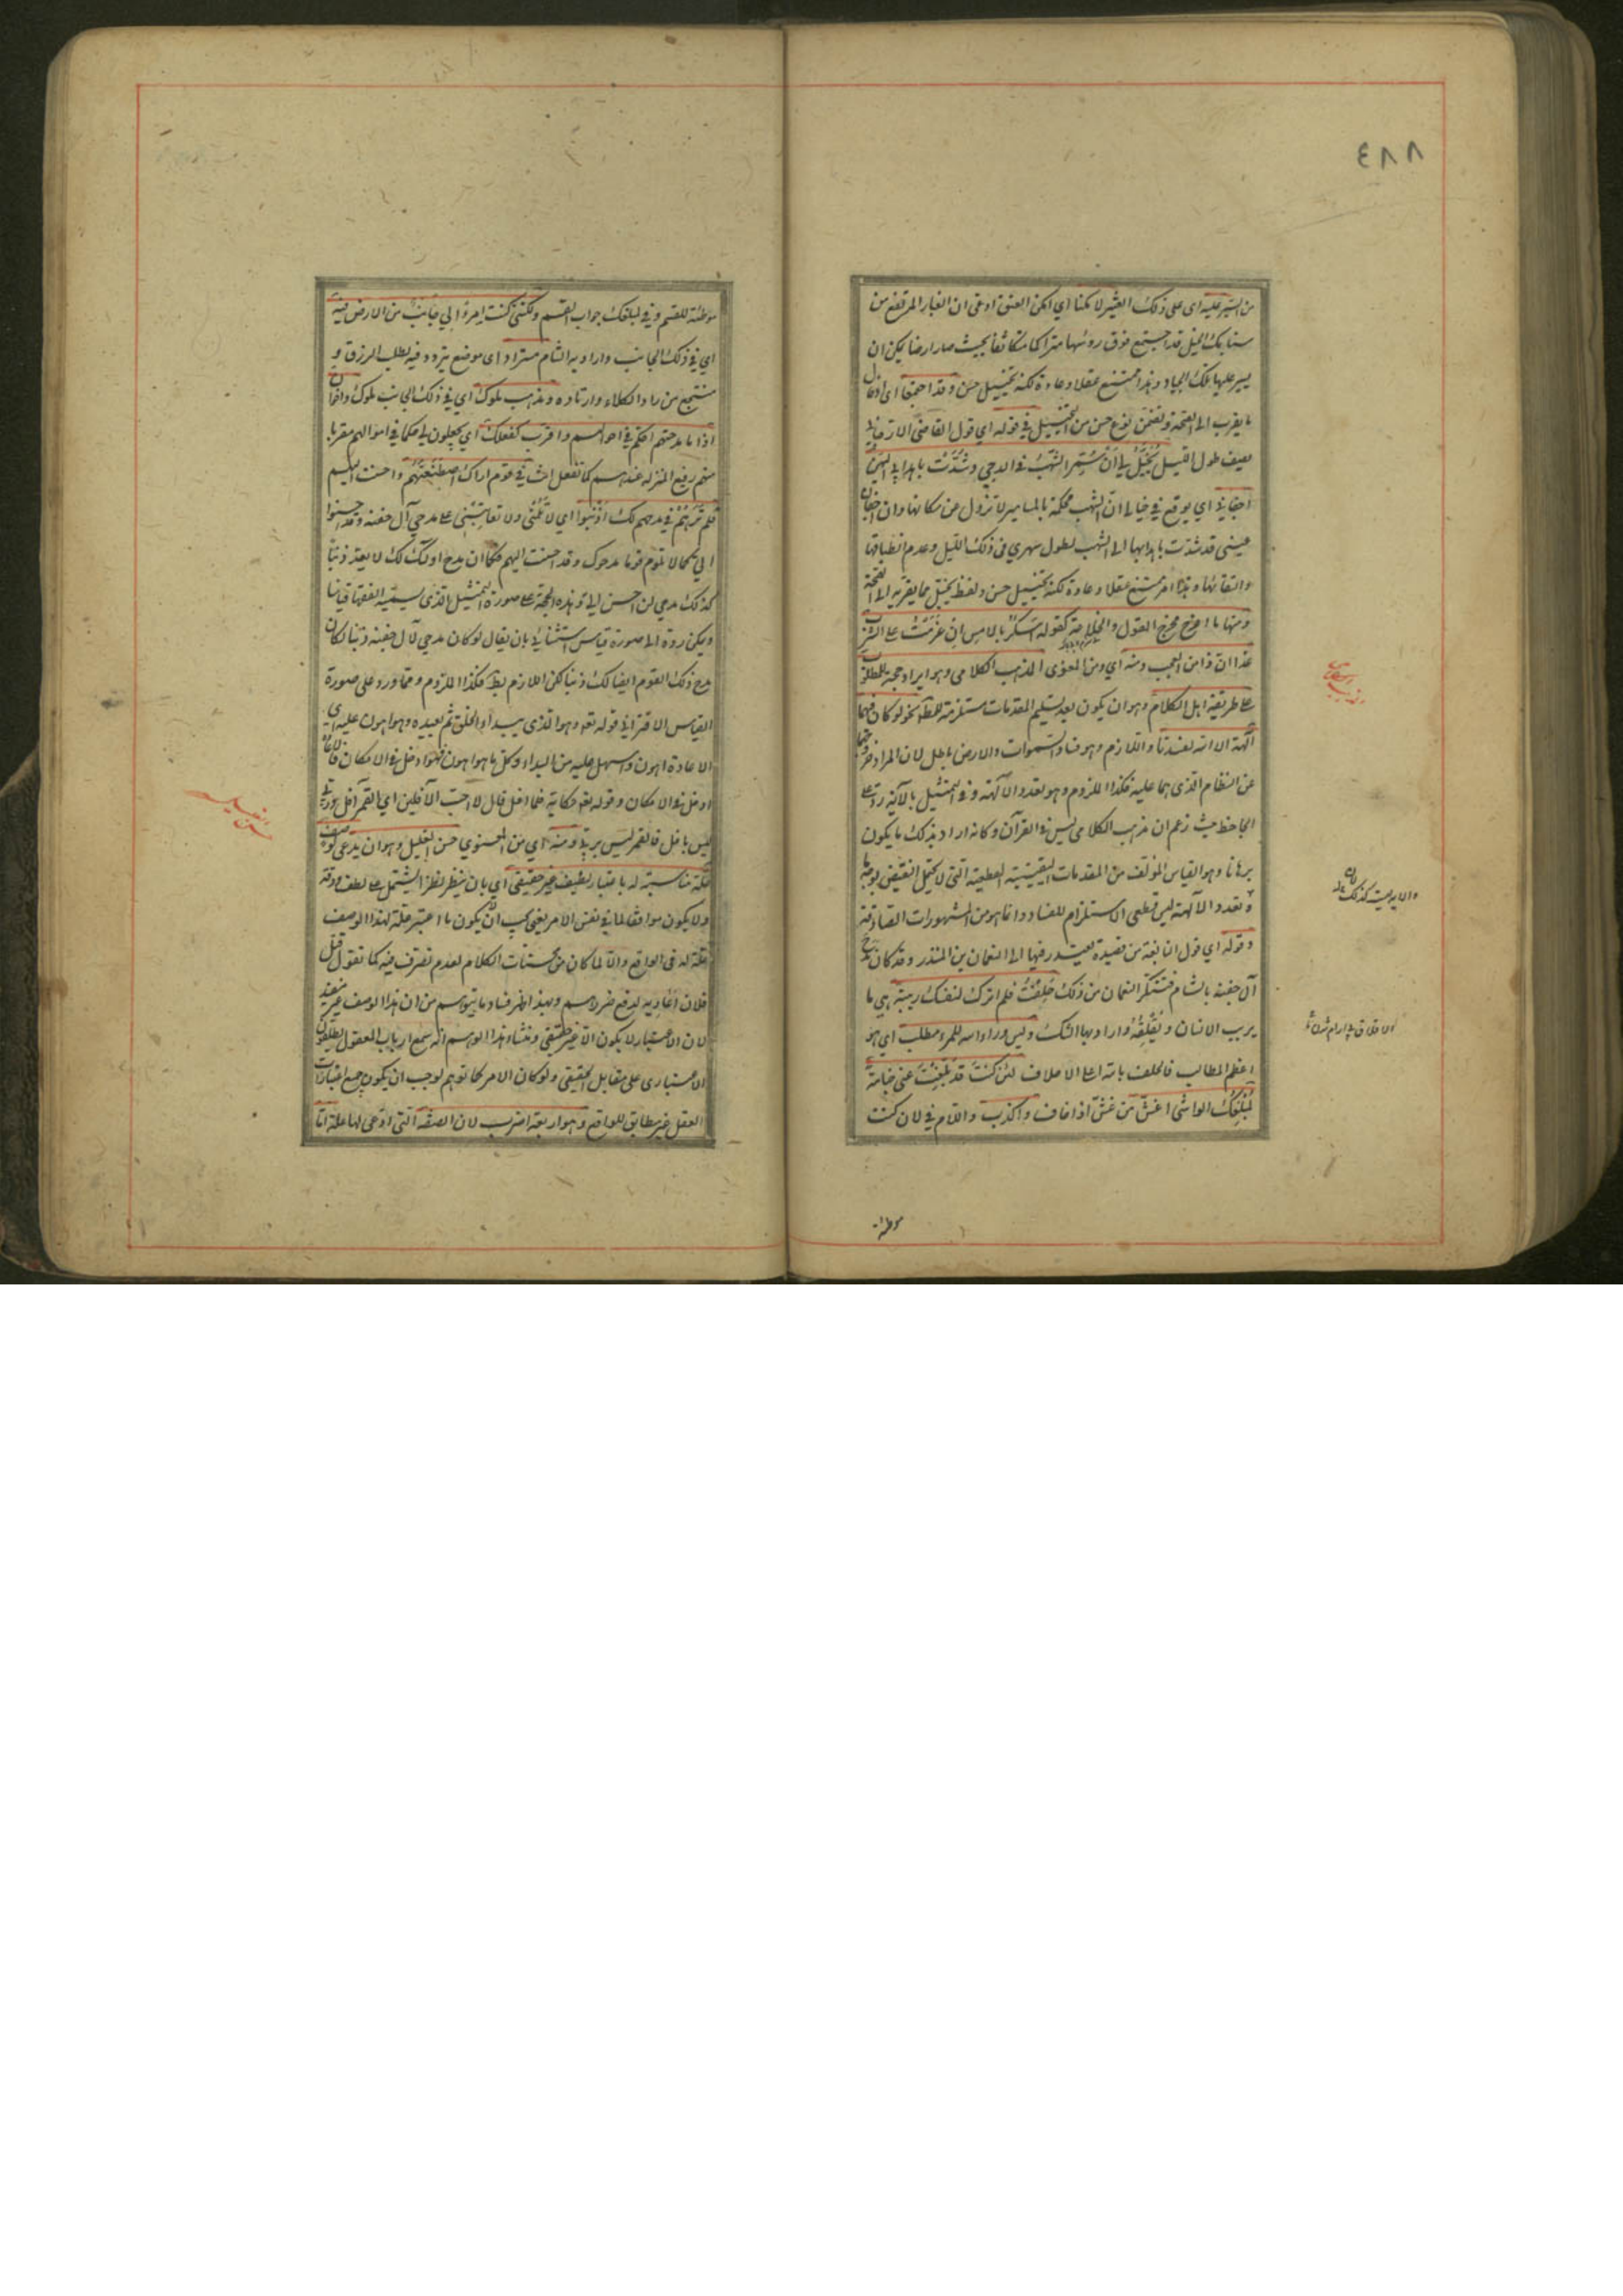 ٤٨٨
من السير عليه اى على ذلك العثير لامكنا اي امكن العنق ادعى ان الغبار المرتفع من
سنابك الخيل قد اجتمع فوق رؤسها متراكما متكاثفا بحيث صار ارضا يمكن ان
يسير عليها تلك الجياد وهذا ممتنع عقلا وعادة لكنه تخييل حسن وقد اجتمعا اى ادخال
ما يقرب الى الصحة وتضمن نوع حسن من التخييل في قوله اي قول القاضى الارجانى
يصف طول الليل يُخَيَّلُ لي اَنْ سُمِّرَ الشُّهْبُ في الدجى وشُدَّتْ باهدابى اليهنّ
اجفانى اي يوقع في خيالى انّ الشهب محكمة بالمسامير لا تزول عن مكانها وان اجفان
عيني قد شدّت باهدابها الى الشهب لطول سهري في ذلك الليل وعدم انطباقها
والتقائها وهذا امر ممتنع عقلا وعادة لكنه تخييل حسن ولفظ يخيّل مما يقربه الى الصحة
ومنها ما اخرج مخرج الهزل والخلاعة كقوله اَسْكَرُ بالامس اِنْ عَزَمْتُ على الشرب
غدا ان ذا من العجب ومنه اي ومن المعنوى المذهب الكلامى وهو ايراد حجة للمطلوب
على طريقة اهل الكلام وهو ان يكون بعد تسليم المقدمات مستلزمة للمطلوب نحو لو كان فيهما
آلهة الا الله لفسدتا واللازم وهو فساد السموات والارض باطل لان المراد خروجهما
عن النظام الذى هما عليه فكذا الملزوم وهو تعدد الآلهة وفى التمثيل بالآية رد على
الجاحظ حيث زعم ان المذهب الكلامى ليس في القرآن وكانه اراد بذلك ما يكون
برهانا وهو القياس المؤلف من المقدمات اليقينية القطعية التى لا تحتمل النقيض بوجه ما
وتعدد الآلهة ليس قطعى الاستلزام للفساد وانما هو من المشهورات الصادقة
وقوله اي قول النابغة من قصيدة يعتذر فيها الى النعمان بن المنذر وقد كان مدح
آل جفنة بالشام فتنكر النعمان من ذلك حَلَفْتُ فلم اترك لنفسك ريبة هي ما
يريب الانسان ويُقْلِقُهُ واراد بها الشك وليس وراء الله للمرء مطلب اي هو
اعظم المطالب فالحلف بالله اعلا الاحلاف لئن كنت قد بُلِّغْتَ عنى خيانة
لَمُبْلِغُكَ الواشى اغشّ من غشّ اذا خان واكذب واللام في لان كنت
موطئة
المذهب الكلامى
موطئة للقسم وفي لمبلغك جواب القسم ولكننى كنت امرءا لي جانبٌ من الارض فيه
اي في ذلك الجانب واراد به الشام مستراد اى موضع يتردد فيه لطلب الرزق و
منتجع من راد الكلاء وارتاده ومذهب ملوك اي في ذلك الجانب ملوك واخوان
اذا ما مدحتهم احكم في اموالهم واقرب كفعلك اي يجعلون لي حكما في اموالهم مقربا
منهم رفيع المنزلة عندهم كما تفعل انت في قوم اراك اصطنعتهم واحسنت اليهم
فلم تَرَهُم في مدحهم لك اذنبوا اي لا تلمنى ولا تعاتبنى على مدحى آل جفنة وقد احسنوا
الي كما لا تلوم قوما مدحوك وقد احسنت اليهم فكما ان مدح اولئك لك لا يعد ذنبا
كذلك مدحي لمن احسن الي وهذه الحجة على صورة التمثيل الذى يسميه الفقهاء قياسا
ويمكن رده الى صورة قياس استثنائى بان يقال لو كان مدحي لآل جفنة ذنبا لكان
مدح ذلك القوم ايضا لك ذنبا لكن اللازم بط فكذا الملزوم ومما ورد على صورة
القياس الاقترانى قوله تعه وهو الذى يبدأ الخلق ثم يعيده وهو اهون عليه اي
الاعادة اهون واسهل عليه من البداء وكل ما هو اهون فهو ادخل في الامكان فالاعادة
ادخل في الامكان وقوله تعه حكاية فلما افل قال لا احب الآفلين اي القمر آفل وربى
ليس بآفل فالقمر ليس بربى ومنه اي من المعنوي حسن التعليل وهو ان يدعى لوصف
علة مناسبة له باعتبار لطيف غير حقيقى اي بان ينظر نظرا يشتمل على لطف ودقة
ولا يكون موافقا لما في نفس الامر يعنى يجب ان يكون ما اعتبر علة لهذا الوصف
علة له فى الواقع والا لما كان من محسنات الكلام لعدم تصرف فيه كما تقول قتل
فلان اعاديه لدفع ضررهم وبهذا ظهر فساد ما يتوهم من ان هذا الوصف غير مفيد
لان الاعتبار لا يكون الا غير حقيقى ومنشاء هذا الوهم انه سمع ارباب المعقول يطلقون
الاعتبارى على مقابل الحقيقى ولو كان الامر كما توهم لوجب ان يكون جميع اعتبارات
العقل غير مطابق للواقع وهو اربعة اضرب لان الصفة التى ادعى لها علة اما
حسن التعليل